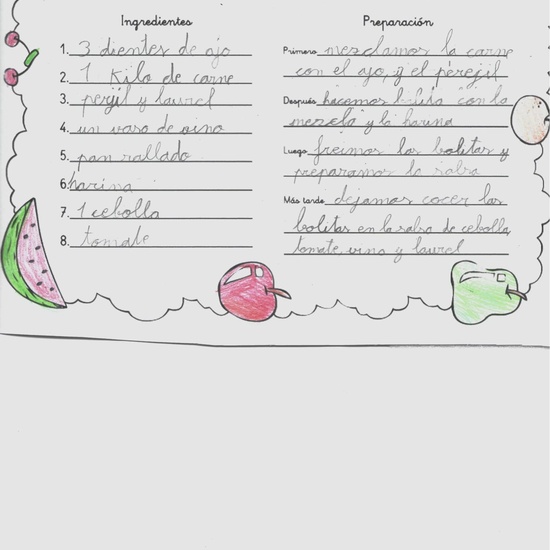 Ingredientes
1. 3 dientes de ajo
2. 1 kilo de carne
3. perjil y laurel
4. un vaso de vino
5. pan rallado
6. harina
7. 1 cebolla
8. tomate
Preparación
Primero mezclamos la carne
con el ajo, y el perejil
Después hacemos bolita con la
mezcla y la harina
Luego freimos las bolitas y
preparamos la salsa
Más tarde dejamos cocer las
bolitas en la salsa de cebolla,
tomate, vino y laurel